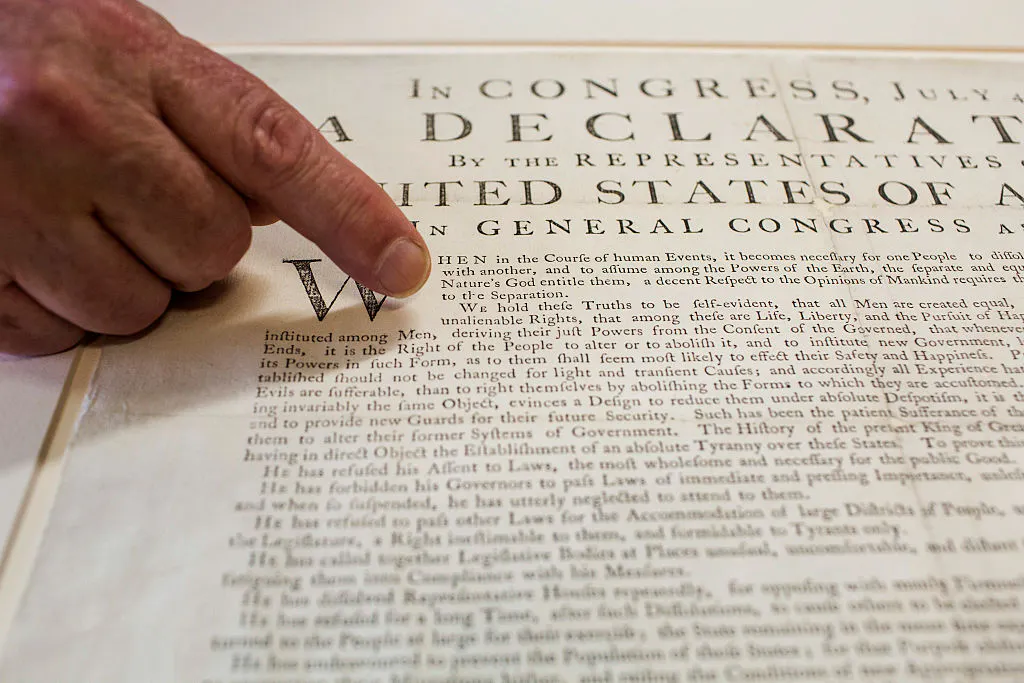 IN CONGRESS, JULY 4
A DECLARAT
BY THE REPRESENTATIVES
ITED STATES OF A
IN GENERAL CONGRESS A
WHEN in the Courſe of human Events, it becomes neceſſary for one People to diſſol
with another, and to aſſume among the Powers of the Earth, the ſeparate and equ
Nature's God entitle them, a decent Reſpect to the Opinions of Mankind requires th
to the Separation.
WE hold theſe Truths to be ſelf-evident, that all Men are created equal,
unalienable Rights, that among theſe are Life, Liberty, and the Purſuit of Hap
inſtituted among Men, deriving their juſt Powers from the Conſent of the Governed, that whenever
Ends, it is the Right of the People to alter or to aboliſh it, and to inſtitute new Government, l
its Powers in ſuch Form, as to them ſhall ſeem moſt likely to effect their Safety and Happineſs. P
tabliſhed ſhould not be changed for light and tranſient Cauſes; and accordingly all Experience hat
Evils are ſufferable, than to right themſelves by aboliſhing the Forms to which they are accuſtomed.
ing invariably the ſame Object, evinces a Deſign to reduce them under abſolute Deſpotiſm, it is th
and to provide new Guards for their future Security. Such has been the patient Sufferance of th
them to alter their former Syſtems of Government. The Hiſtory of the preſent King of Grea
having in direct Object the Eſtabliſhment of an abſolute Tyranny over theſe States. To prove this
HE has refuſed his Aſſent to Laws, the moſt wholeſome and neceſſary for the public Good.
HE has forbidden his Governors to paſs Laws of immediate and preſſing Importance, unleſ
and when ſo ſuſpended, he has utterly neglected to attend to them.
HE has refuſed to paſs other Laws for the Accommodation of large Diſtricts of People,
the Legiſlature, a Right ineſtimable to them, and formidable to Tyrants only.
HE has called together Legiſlative Bodies at Places unuſual, uncomfortable, and diſtant
fatiguing them into Compliance with his Meaſures.
HE has diſſolved Repreſentative Houſes repeatedly, for oppoſing with manly Firmneſ
HE has refuſed for a long Time, after ſuch Diſſolutions, to cauſe others to be elected
turned to the People at large for their exerciſe; the State remaining in the mean time
HE has endeavoured to prevent the Population of theſe States; for that Purpoſe